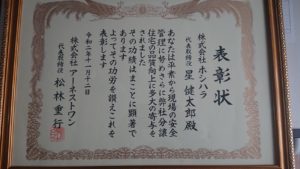 表彰状
株式会社 ホシハラ
代表取締役 星 健太郎 殿
あなたは平素から現場の安全
管理に努めさらに弊社分譲
住宅の品質向上に多大の寄与を
されました
その功績はまことに顕著で
あります
よってその功労を讃えこれを
表彰します
令和二年十一月十二日
株式会社 アーネストワン
代表取締役 松林重行